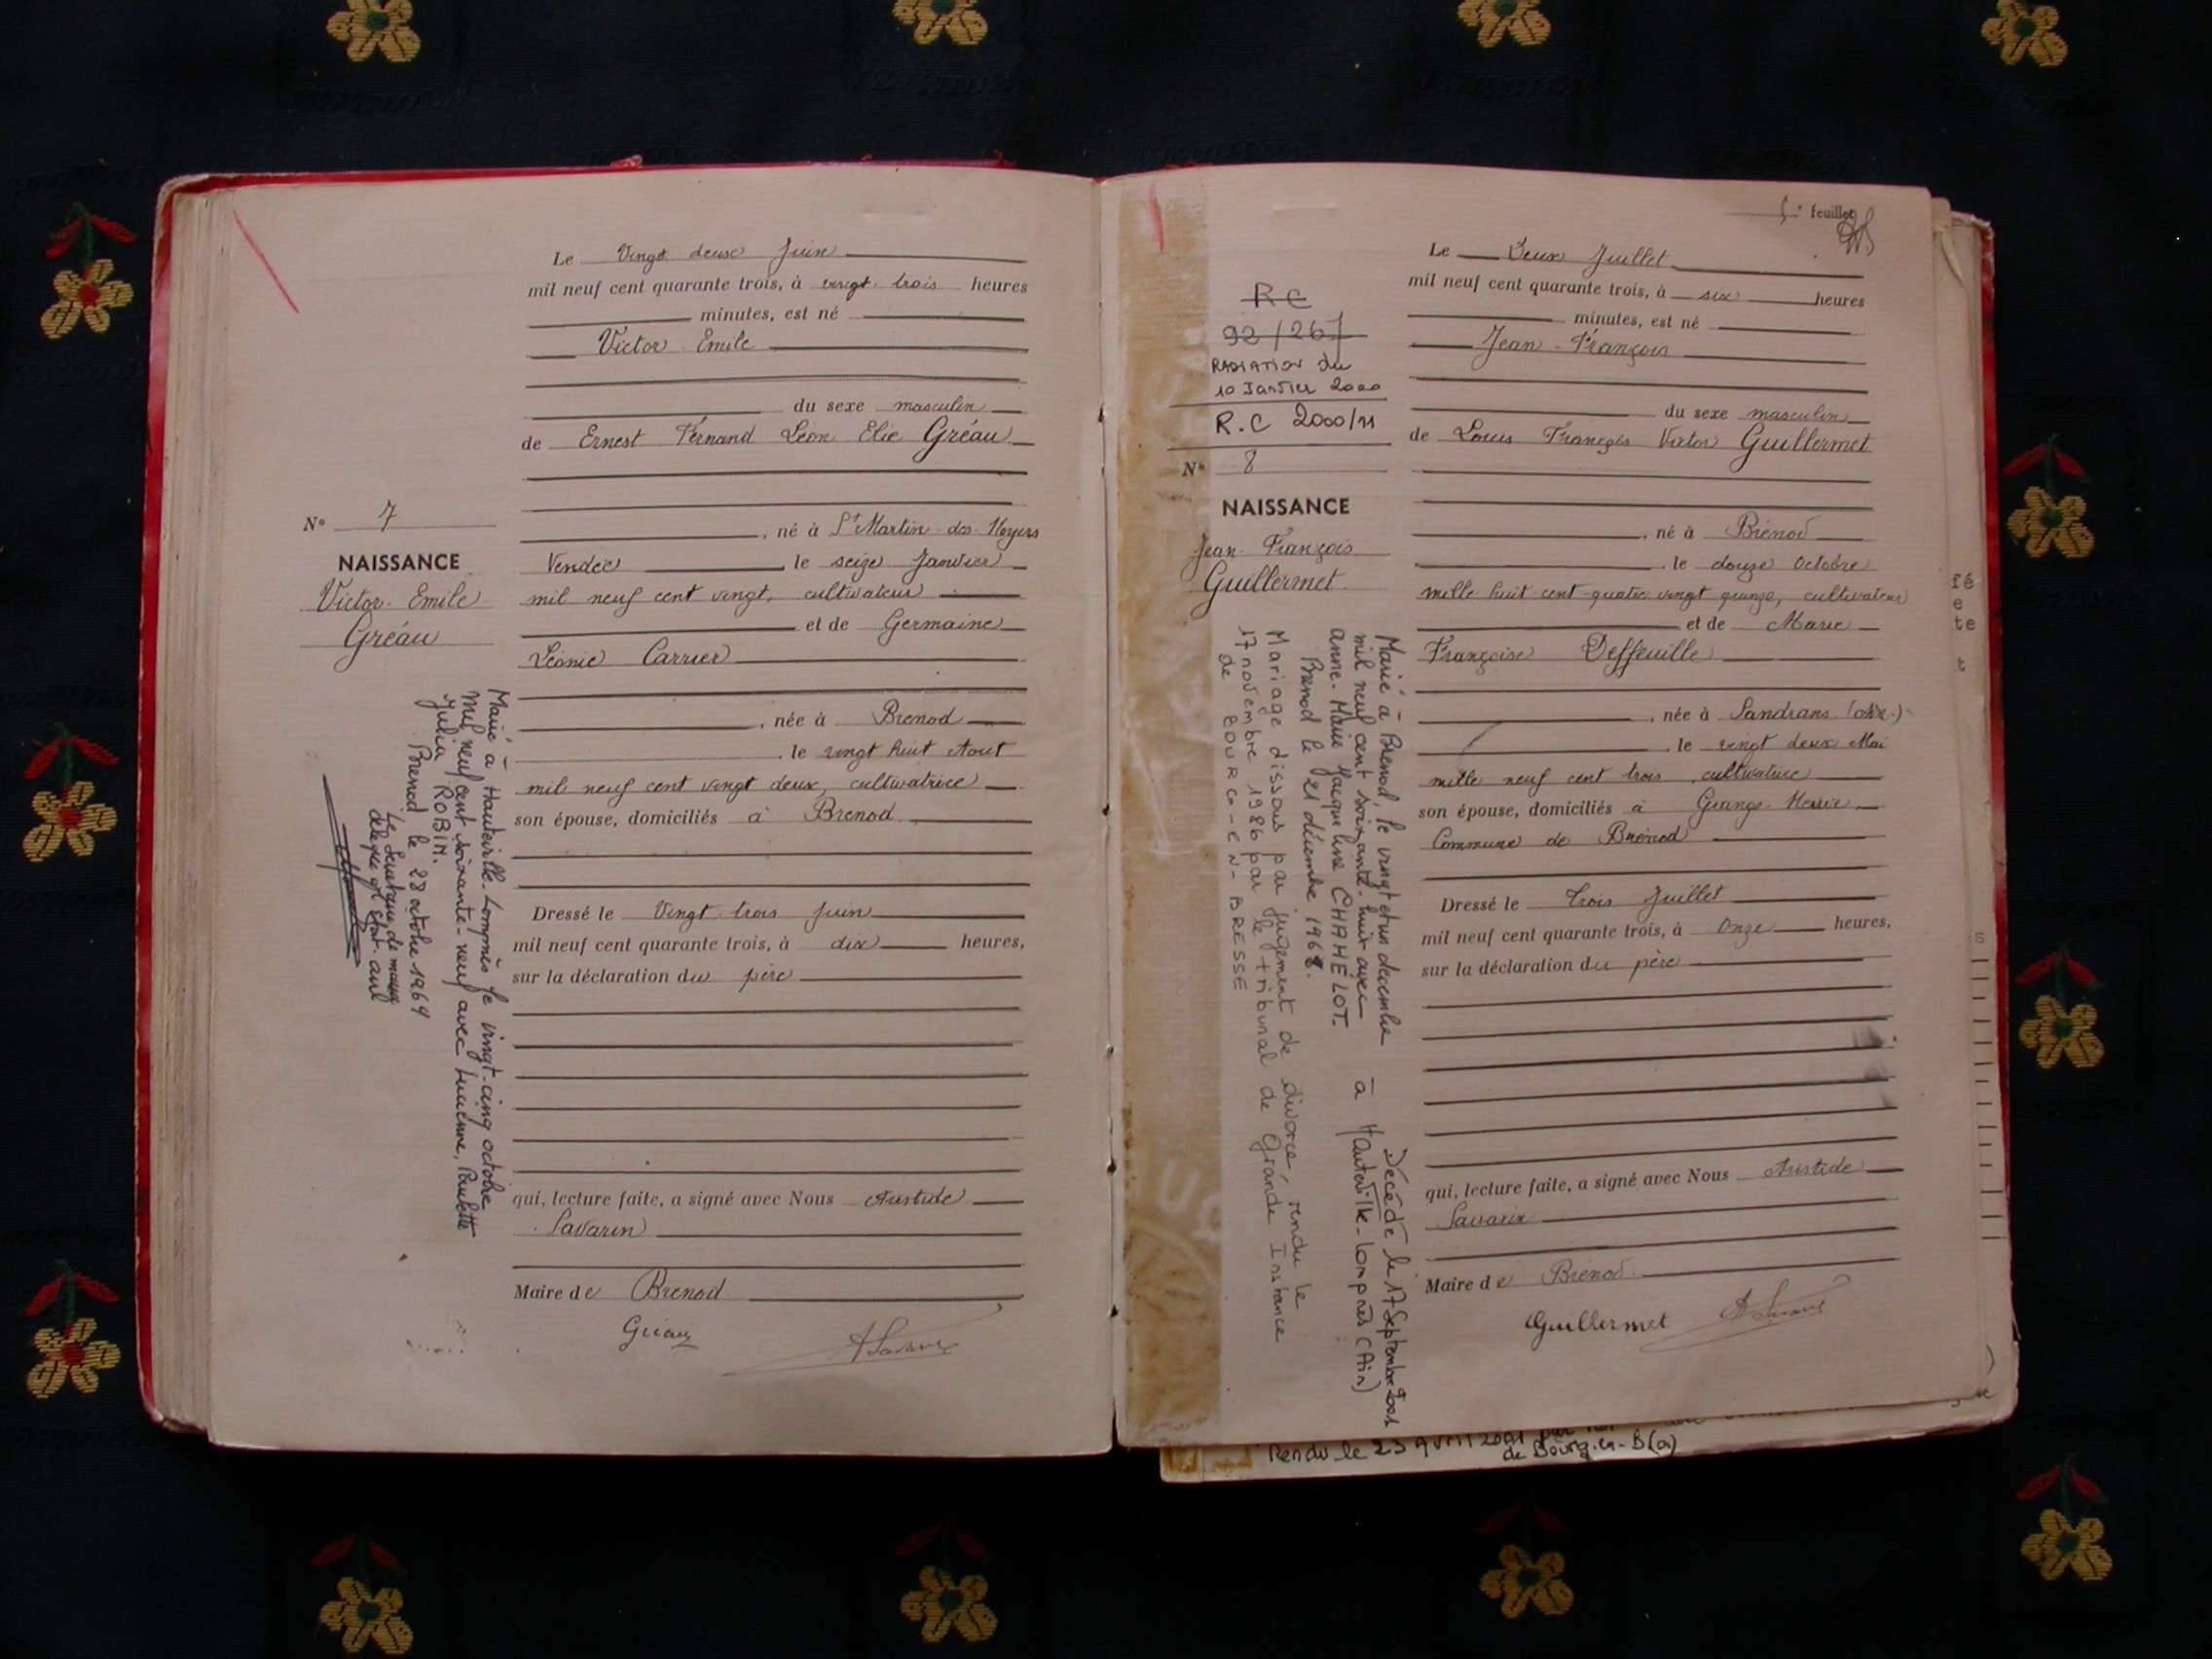 Le Vingt deux Juin
mil neuf cent quarante trois, à vingt trois heures
minutes, est né
Victor Emile
du sexe masculin
de Ernest Fernand Léon Elie Gréau
, né à St Martin-des-Noyers
Vendée le seize Janvier
mil neuf cent vingt, cultivateur
et de Germaine
Léonie Carrier
, née à Brenod
, le vingt huit Aout
mil neuf cent vingt deux, cultivatrice
son épouse, domiciliés à Brenod
Dressé le Vingt trois Juin
mil neuf cent quarante trois, à dix heures,
sur la déclaration du père
qui, lecture faite, a signé avec Nous Aristide
Savarin
Maire de Brenod
Gréau
N° 7
NAISSANCE
Victor Emile
Gréau
Marié à Hauteville-Lompnès le vingt-cinq octobre
mil neuf cent soixante-neuf avec Lucienne, Paulette
Julia ROBIN.
Brenod le 28 octobre 1969
Le Secrétaire de mairie
délégué à l'Etat-civil
5e feuillet
R C
92/267
RADIATION du
10 Janvier 2000
R.C 2000/11
N° 8
NAISSANCE
Jean-François
Guillermet
Marié à Brenod, le vingt et un decembre
mil neuf cent soixante-huit avec
Anne-Marie Jacqueline CHAMELOT.
Brenod le 21 décembre 1968.
Mariage dissous par jugement de divorce, rendu le
17 novembre 1986 par le tribunal de Grande Instance
de BOURG-EN-BRESSE
Décédé le 17 Septembre 2001
à Hauteville-Lompnès (Ain)
Le Deux Juillet
mil neuf cent quarante trois, à six heures
minutes, est né
Jean-François
du sexe masculin
de Louis François Victor Guillermet
, né à Brénod
, le douze Octobre
mille huit cent quatre vingt quinze, cultivateur
et de Marie
Françoise Deffeuille
, née à Sandrans (Ain)
, le vingt deux Mai
mille neuf cent trois, cultivatrice
son épouse, domiciliés à Grange
Commune de Brénod
Dressé le trois Juillet
mil neuf cent quarante trois, à onze heures,
sur la déclaration du père
qui, lecture faite, a signé avec Nous Aristide
Savarin
Maire de Brénod
Guillermet
Rendu le 23 avril 2001
de Bourg-en-B